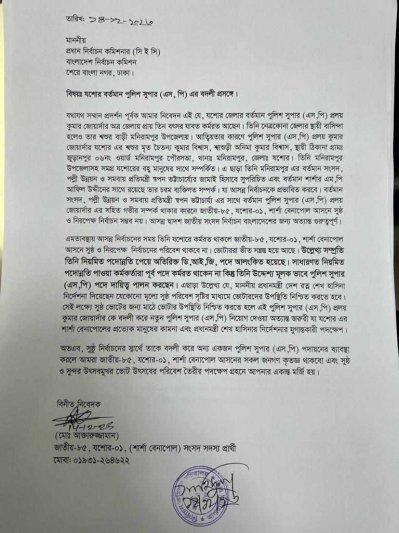 তারিখ: ১৪-১২-২০২৩
মাননীয়
প্রধান নির্বাচন কমিশনার (সি ই সি)
বাংলাদেশ নির্বাচন কমিশন
শেরে বাংলা নগর, ঢাকা।
বিষয়ঃ যশোর বর্তমান পুলিশ সুপার (এস, পি) এর বদলী প্রসঙ্গে।
যথাযথ সম্মান প্রদর্শন পূর্বক আমার নিবেদন এই যে, যশোর জেলার বর্তমান পুলিশ সুপার (এস,পি) প্রলয়
কুমার জোয়ার্দার অত্র জেলায় প্রায় তিন বৎসর যাবত কর্মরত আছেন। তিনি নেত্রকোনা জেলার স্থায়ী বাসিন্দা
হলেও তার শ্বশুর বাড়ী মনিরামপুর উপজেলায়। আত্মিয়তার কারণে পুলিশ সুপার (এস,পি) প্রলয় কুমার
জোয়ার্দার যশোর এর শ্বশুর মৃত চৈতন্য কুমার বিশ্বাস, শ্বাশুড়ী অনিমা কুমার বিশ্বাস, স্থায়ী ঠিকানা গ্রামঃ
জুড়ানপুর ০৬নং ওয়ার্ড মনিরামপুর পৌরসভা, থানাঃ মনিরামপুর, জেলাঃ যশোর। তিনি মনিরামপুর
উপজেলাসহ সমগ্র যশোরের বহু মানুষের সাথে সম্পর্কিত। এ ছাড়া তিনি মনিরামপুর এর বর্তমান সংসদ,
পল্লী উন্নয়ন ও সমবায় প্রতিমন্ত্রী স্বপন ভট্টাচার্যের জামাই হিসাবে সুপরিচিত এবং বর্তমান শার্শার এম,পি
আফিল উদ্দীনের সাথে রয়েছে তার চরম ব্যক্তিগত সম্পর্ক। যা আসন্ন নির্বাচনকে প্রভাবিত করবে। বর্তমান
সংসদ, পল্লী উন্নয়ন ও সমবায় প্রতিমন্ত্রী স্বপন ভট্টাচার্য্য এর সাথে বর্তমান পুলিশ সুপার (এস,পি) প্রলয় কুমার
জোয়ার্দার এর সহিত গভীর সম্পর্ক থাকার কারনে জাতীয়-৮৫, যশোর-০১, শার্শা বেনাপোল আসনে সুষ্ঠ
ও নিরপেক্ষ নির্বাচন সম্ভব নয়। আসন্ন দ্বাদশ জাতীয় সংসদ নির্বাচন বাংলাদেশের জন্য অত্যন্ত গুরুত্বপূর্ণ।
এমতাবস্থায় আসন্ন নির্বাচনের সময় তিনি যশোরে কর্মরত থাকলে জাতীয়-৮৫, যশোর-০১, শার্শা বেনাপোল
আসনে সুষ্ঠ ও নিরপেক্ষ নির্বাচনের পরিবেশ থাকবে না। ভোটাররা ভীত সন্ত্রস্ত হয়ে আছে। উল্লেখ্য সম্প্রতি
তিনি নিয়মিত পদোন্নতি পেয়ে অতিরিক্ত ডি,আই,জি, পদে আলংকিত হয়েছে। সাধারণত নিয়মিত
পদোন্নতি পাওয়া কর্মকর্তারা পূর্ব পদে কর্মরত থাকেন না কিন্তু তিনি উদ্দেশ্য মূলক ভাবে পুলিশ সুপার
(এস,পি) পদে দায়িত্ব পালন করছেন। এছাড়া উল্লেখ্য যে, মাননীয় প্রধানমন্ত্রী দেশ রত্ন শেখ হাসিনা
নির্দেশনা দিয়েছেন যেকোনো মূল্যে সুষ্ঠ পরিবেশ সৃষ্টির মাধ্যমে ভোটারদের উপস্থিতি নিশ্চিত করতে হবে।
সেই লক্ষ্যে সুষ্ঠ ভোটের জন্য মাঠে ভোটার উপস্থিতি নিশ্চিত করতে হলে এই পুলিশ সুপার (এস,পি) প্রলয়
কুমার জোয়ার্দার কে বদলী করে নতুন পুলিশ সুপার (এস,পি) নিয়োগ দেওয়া অত্যান্ত জরুরী যা যশোর এর
শার্শা বেনাপোলের প্রত্যেক মানুষের কামনা এবং প্রধানমন্ত্রী শেখ হাসিনার নির্দেশনার যুগান্তকারী পদক্ষেপ।
অতএব, সুষ্ঠু নির্বাচনের স্বার্থে তাকে বদলী করে অন্য একজন পুলিশ সুপার (এস,পি) পদায়নের ব্যবস্থা
করলে আমরা জাতীয়-৮৫, যশোর-০১, শার্শা বেনাপোল আসনের সকল জনগণ কৃতজ্ঞ থাকবো এবং সুষ্ঠ
ও সুন্দর উৎসবমুখর ভোট উৎসবের পরিবেশ তৈরীর পদক্ষেপ গ্রহনে আপনার একান্ত মর্জি হয়।
বিনীত নিবেদক
(মোঃ আক্তারুজ্জামান)
জাতীয়-৮৫, যশোর-০১, (শার্শা বেনাপোল) সংসদ সদস্য প্রার্থী
মোবাঃ ০১৯৩১-২৬৪৬২২